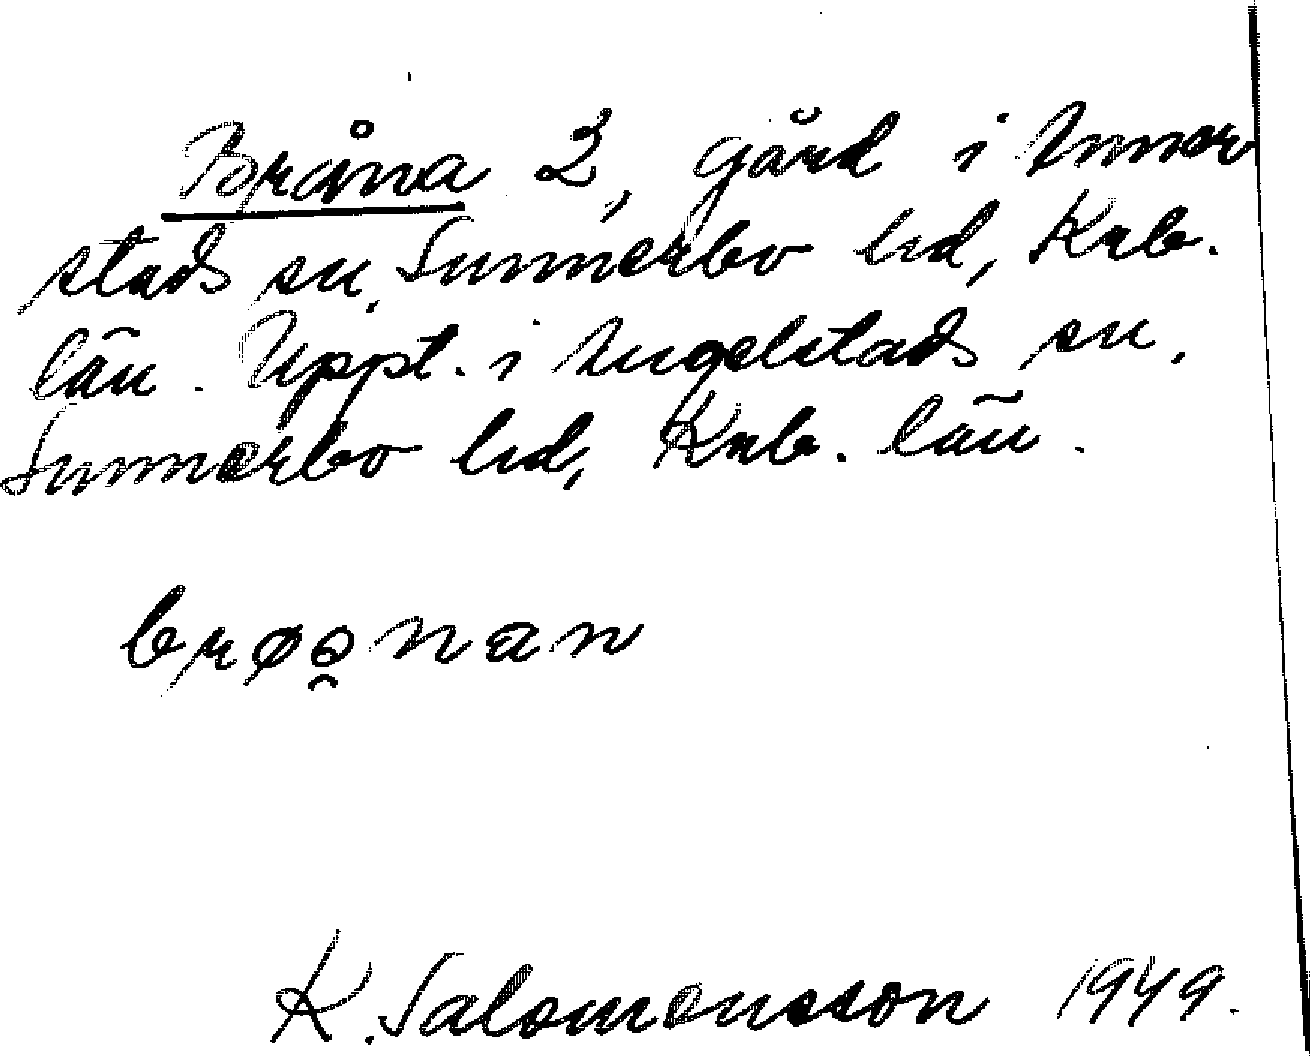 Bråna 2, gård i Annerstads sn, Sunnerbo hd, Krb.
län. Uppt. i Angelstads sn,
Sunnerbo hd, Krb. län.
brøo̯nan
K. Salomonsson 1949.